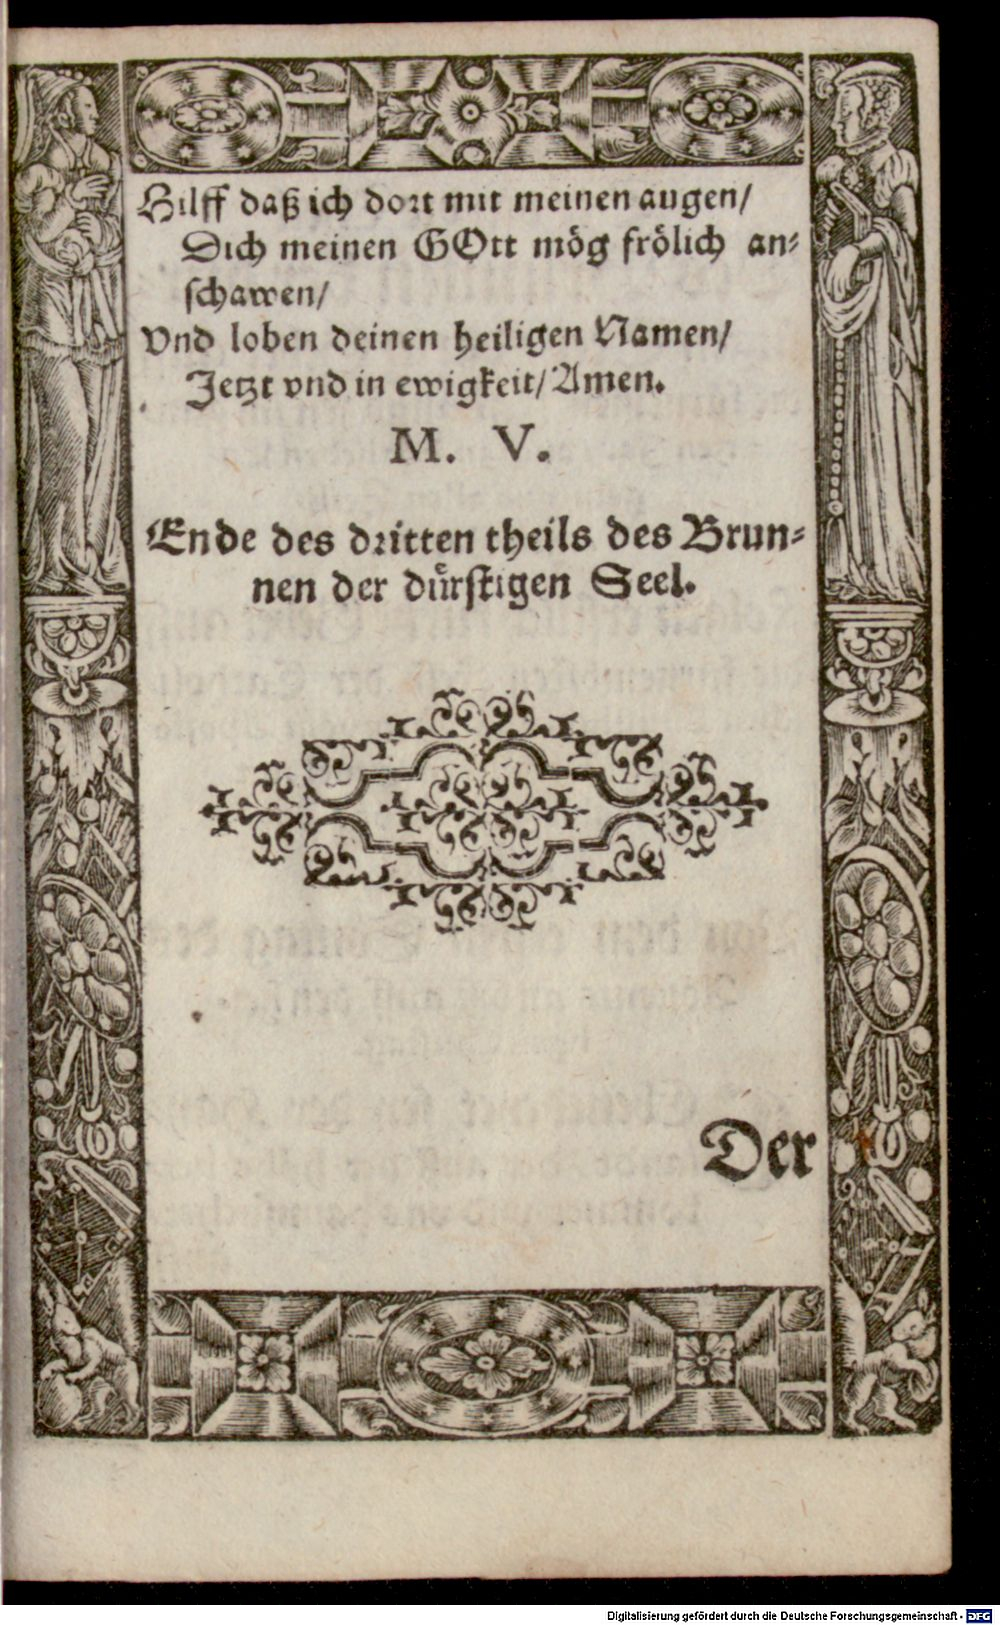 Hilff daß ich dort mit meinen augen/
Dich meinen GOtt mög frölich an⸗
schawen/
Vnd loben deinen heiligen Namen/
Jetzt vnd in ewigkeit/ Amen.
M. V.
Ende des dritten theils des Brun⸗
nen der dürstigen Seel.
Der
Digitalisierung gefördert durch die Deutsche Forschungsgemeinschaft - DFG